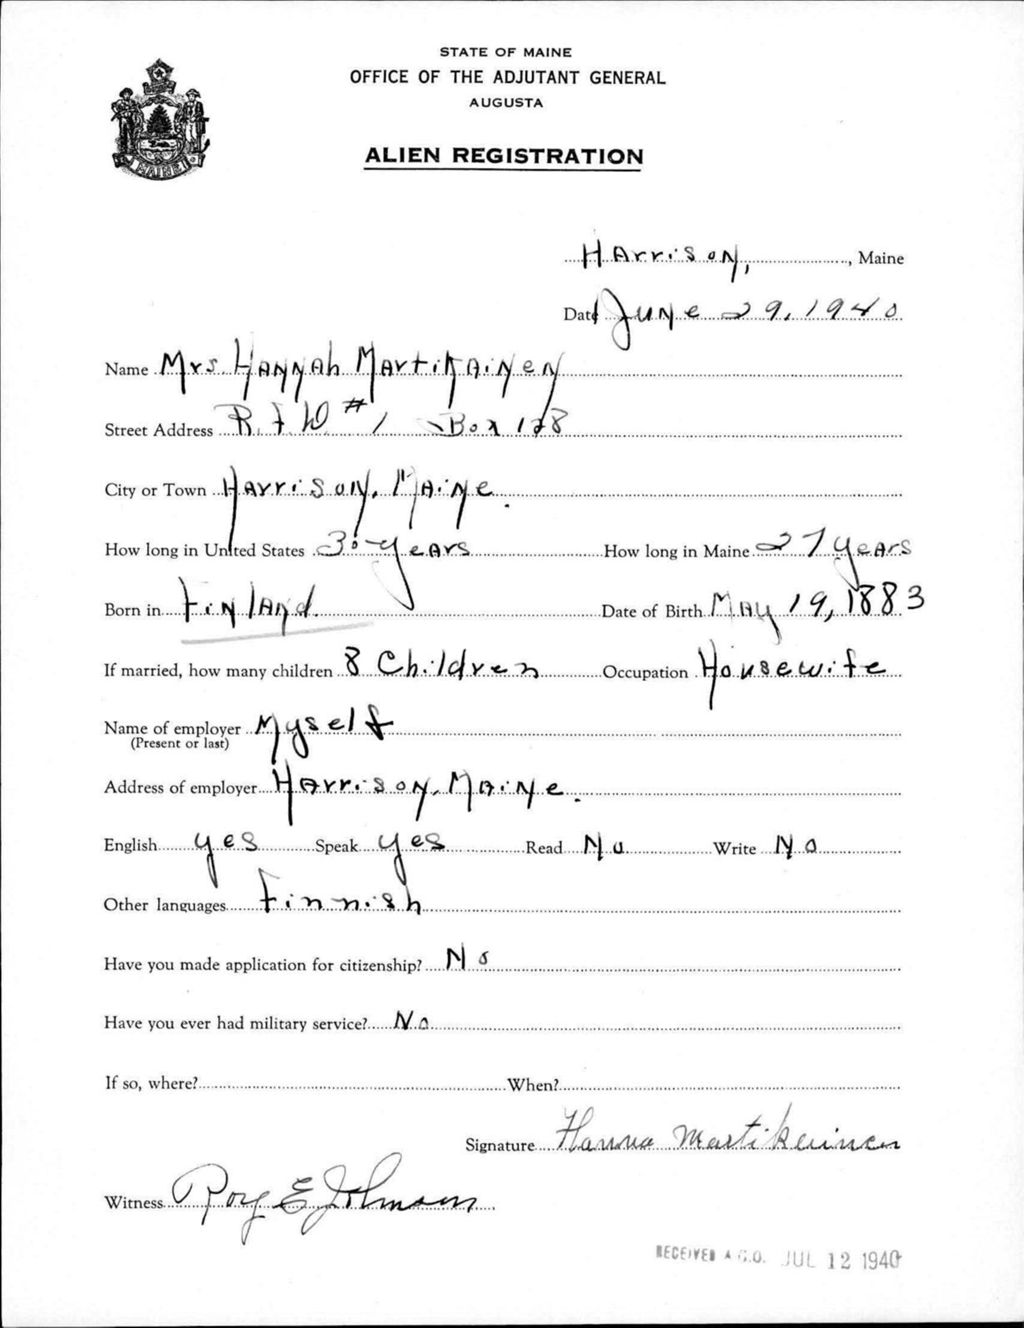 STATE OF MAINE
OFFICE OF THE ADJUTANT GENERAL
AUGUSTA
ALIEN REGISTRATION
MAINE
Harrison, , Maine
Date June 29, 1940
Name Mrs Hannah Martikainen
Street Address R.F.D #1 Box 178
City or Town Harrison, Maine.
How long in United States 30 years How long in Maine 27 years
Born in Finland Date of Birth May 19, 1883
If married, how many children 8 Children Occupation Housewife
Name of employer Myself
(Present or last)
Address of employer Harrison, Maine.
English yes Speak yes Read No Write No
Other languages Finnish
Have you made application for citizenship? No
Have you ever had military service? No
If so, where? When?
Signature Hanna Martikainen
Witness Roy E Johnson
RECEIVED A.G.O. JUL 12 1940